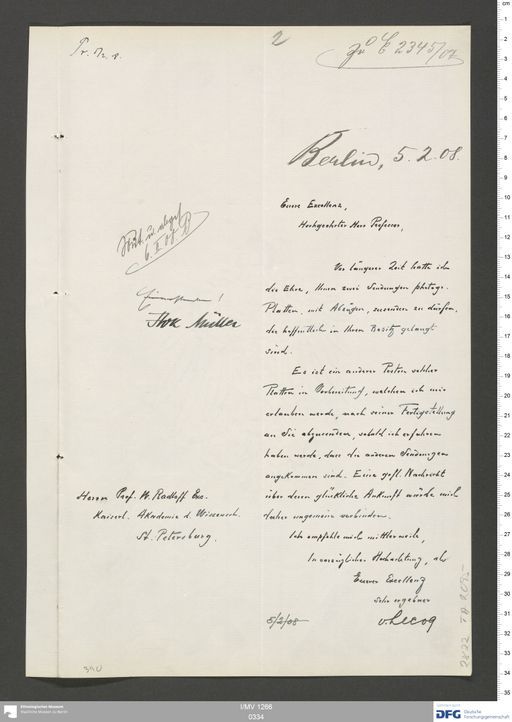 Pr. 5/2. 8.
2
zu E 2345/07
Berlin, 5.2.08.
Euere Excellenz,
Hochgeehrter Herr Professor,
Vor längerer Zeit hatte ich
die Ehre, Ihnen zwei Sendungen photogr.
Platten, mit Abzügen, zusenden zu dürfen,
die hoffentlich in Ihren Besitz gelangt
sind.
Es ist ein anderer Posten solcher
Platten in Vorbereitung, welchen ich mir
erlauben werde, nach seiner Fertigstellung
an Sie abzusenden, sobald ich erfahren
haben werde, dass die anderen Sendungen
angekommen sind. Eine gefl. Nachricht
über deren glückliche Ankunft würde mich
daher ungemein verbinden.
Ich empfehle mich mittlerweile,
In vorzüglicher Hochachtung, als
Euerer Excellenz
sehr ergebener
v. Lecoq
5/2/08
6. II. 08
Einverstanden!
Müller
Herrn Prof. W. Radloff Exc.
Kaiserl. Akademie d. Wissensch.
St. Petersburg.
I/MV 1266
0334
Ethnologisches Museum
Staatliche Museen zu Berlin
DFG Deutsche
Forschungsgemeinschaft